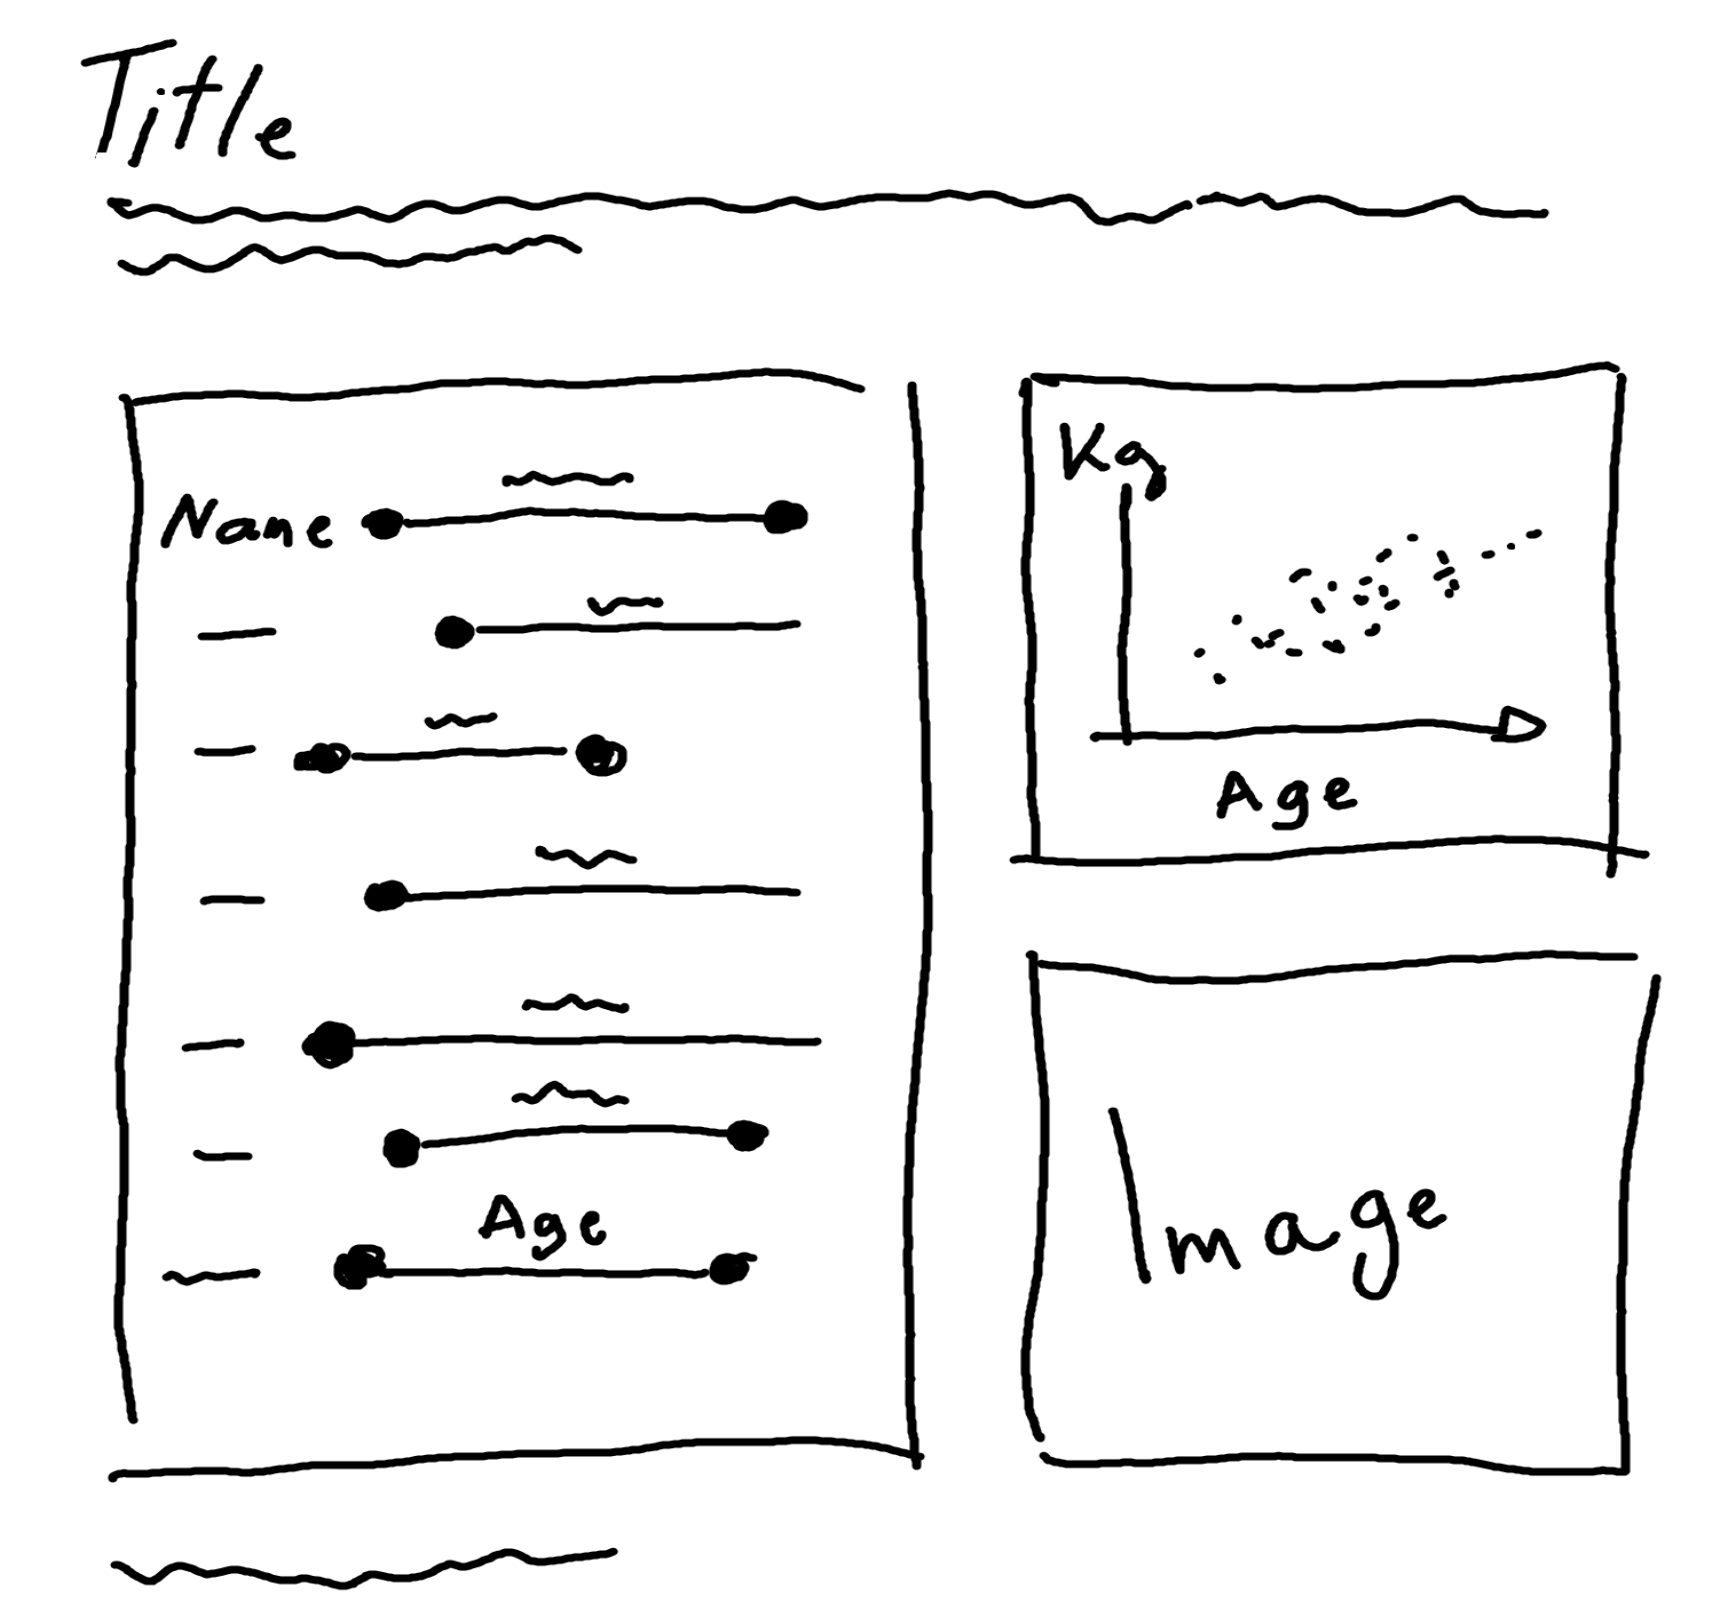 Title
Name
Age
Kg
Age
Image